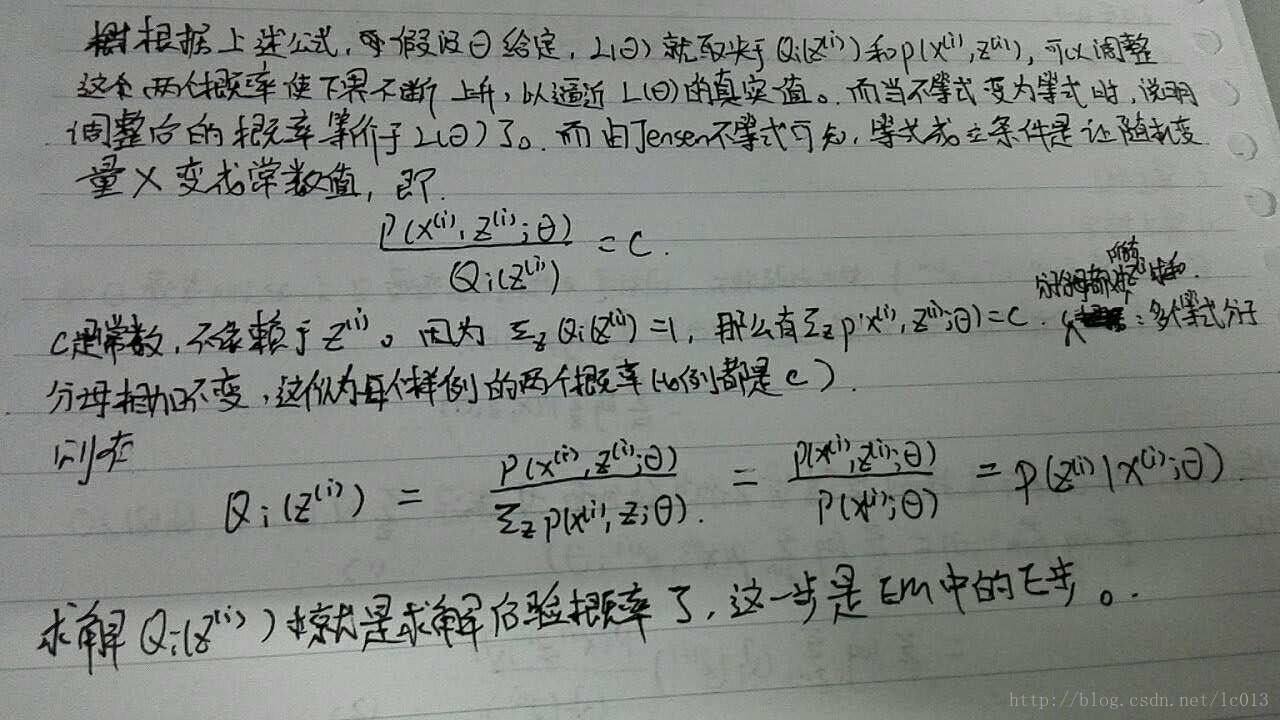 根据上述公式,假设θ给定,L(θ)就取决于Qi(z⁽ⁱ⁾)和p(x⁽ⁱ⁾,z⁽ⁱ⁾),可以调整
这个两个概率使下界不断上升,以逼近L(θ)的真实值。而当不等式变为等式时,说明
调整后的概率等价于L(θ)了。而由Jensen不等式可知,等式成立条件是让随机变
量X变成常数值,即
P(x⁽ⁱ⁾,z⁽ⁱ⁾;θ) / Qi(z⁽ⁱ⁾) = C.
C是常数,不依赖于z⁽ⁱ⁾。因为 Σz Qi(z⁽ⁱ⁾)=1,那么有Σz p(x⁽ⁱ⁾,z⁽ⁱ⁾;θ)=C.(:多个等式分子
分母相加不变,这认为每个样例的两个概率比例都是c).
则有
Qi(z⁽ⁱ⁾) = P(x⁽ⁱ⁾,z⁽ⁱ⁾;θ) / Σz P(x⁽ⁱ⁾,z;θ). = P(x⁽ⁱ⁾,z⁽ⁱ⁾;θ) / P(x⁽ⁱ⁾;θ) = P(z⁽ⁱ⁾|x⁽ⁱ⁾;θ).
求解Qi(z⁽ⁱ⁾)就是求解后验概率了,这一步是EM中的E步。
http://blog.csdn.net/lc013